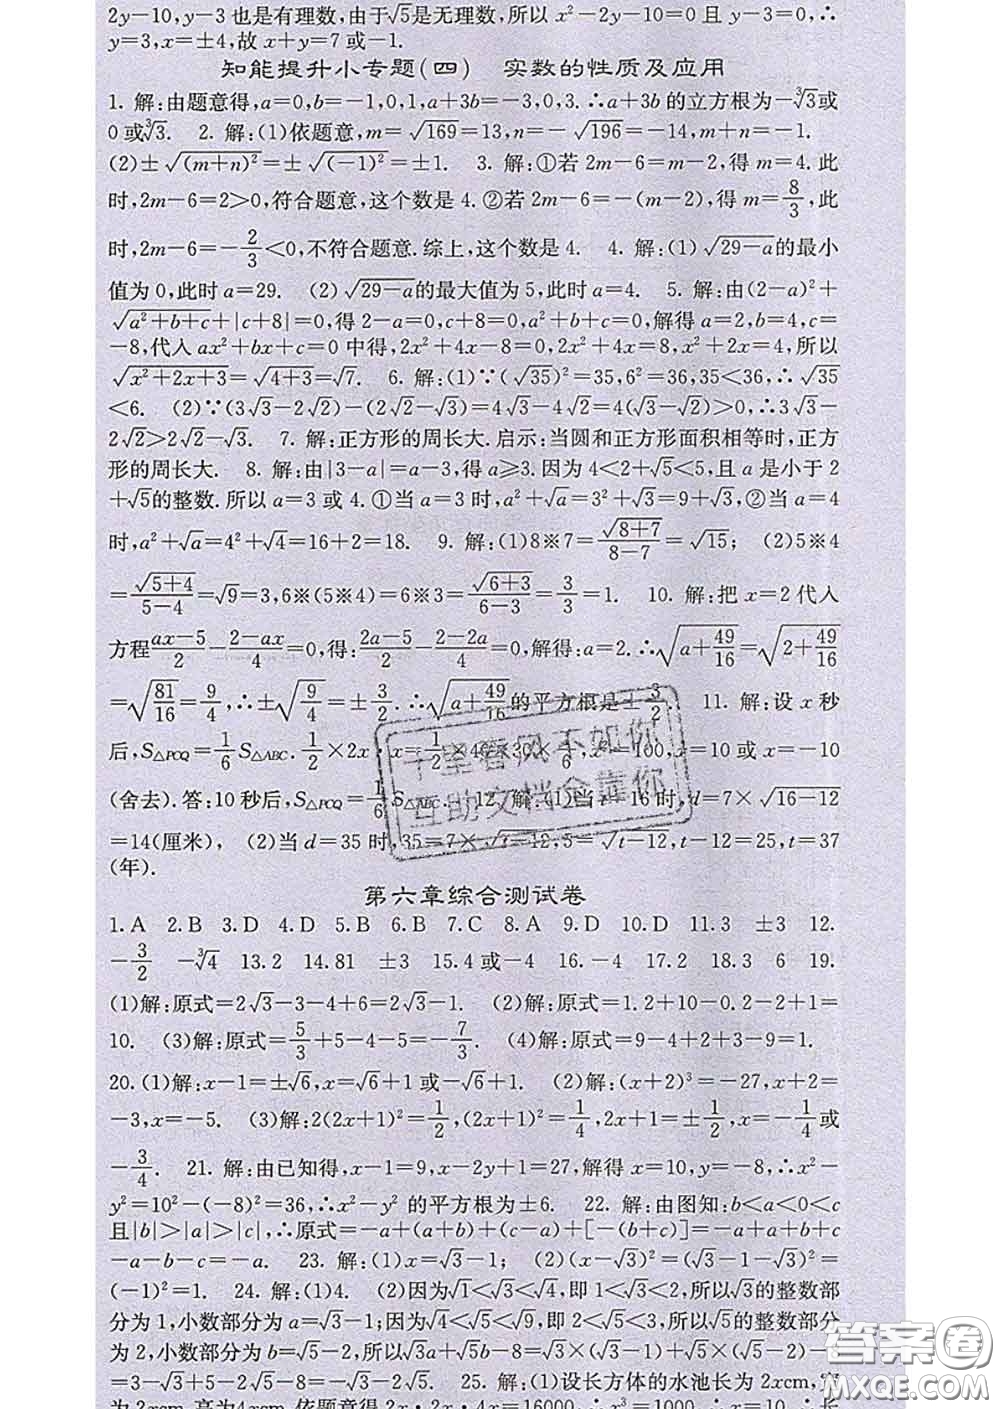 2y-10,y-3也是有理数,由于√5是无理数,所以 x²-2y-10=0 且 y-3=0,∴
y=3,x=±4,故 x+y=7 或-1.
知能提升小专题(四)　实数的性质及应用
1. 解:由题意得,a=0,b=-1,0,1,a+3b=-3,0,3.∴a+3b 的立方根为-∛3或
0或∛3.　2. 解:(1)依题意,m=√169=13,n=-√196=-14,m+n=-1.
(2)±√(m+n)²=±√(-1)²=±1.　3. 解:①若 2m-6=m-2,得 m=4. 此
时,2m-6=2>0,符合题意,这个数是 4. ②若 2m-6=-(m-2),得 m=8/3,此
时,2m-6=-2/3<0,不符合题意. 综上,这个数是 4.　4. 解:(1)√(29-a)的最小
值为 0,此时 a=29.　(2)√(29-a)的最大值为 5,此时 a=4.　5. 解:由(2-a)²+
√(a²+b+c)+|c+8|=0,得 2-a=0,c+8=0,a²+b+c=0,解得 a=2,b=4,c=
-8,代入 ax²+bx+c=0 中得,2x²+4x-8=0,2x²+4x=8,x²+2x=4,所以
√(x²+2x+3)=√(4+3)=√7.　6. 解:(1)∵(√35)²=35,6²=36,35<36,∴√35
<6.　(2)∵(3√3-2√2)-(2√2-√3)=4√3-4√2=4(√3-√2)>0,∴3√3-
2√2>2√2-√3.　7. 解:正方形的周长大. 启示:当圆和正方形面积相等时,正方
形的周长大.　8. 解:由|3-a|=a-3,得 a≥3. 因为 4<2+√5<5,且 a 是小于 2
+√5的整数. 所以 a=3 或 4. ①当 a=3 时,a²+√a=3²+√3=9+√3,②当 a=4
时,a²+√a=4²+√4=16+2=18.　9. 解:(1)8※7=√(8+7)/(8-7)=√15;　(2)5※4
=√(5+4)/(5-4)=√9=3,6※(5※4)=6※3=√(6+3)/(6-3)=3/3=1.　10. 解:把 x=2 代入
方程(ax-5)/2-(2-ax)/4=0,得:(2a-5)/2-(2-2a)/4=0,解得:a=2.∴√(a+49/16)=√(2+49/16)
=√(81/16)=9/4,∴±√(9/4)=±3/2.∴√(a+49/16)的平方根是±3/2.　11. 解:设 x 秒
后,S△PCQ=1/6 S△ABC. 1/2×2x·x=1/2×40×30×1/6,x²=100,x=10 或 x=-10
(舍去). 答:10 秒后,S△PCQ=1/6 S△ABC.　12. 解:(1)当 t=16 时,d=7×√(16-12)
=14(厘米),　(2)当 d=35 时,35=7×√(t-12),5=√(t-12),t-12=25,t=37
(年).
第六章综合测试卷
1. A　2. B　3. D　4. D　5. B　6. B　7. C　8. A　9. D　10. D　11. 3　±3　12.
-3/2　-∛4　13. 2　14. 81　±3　15. 4 或-4　16. -4　17. 2　18. 3　6　19.
(1)解:原式=2√3-3-4+6=2√3-1.　(2)解:原式=1.2+10-0.2-2+1=
10.　(3)解:原式=5/3+5-4-5=-7/3.　(4)解:原式=9-4+2+3-9=1.
20. (1)解:x-1=±√6,x=√6+1 或-√6+1.　(2)解:(x+2)³=-27,x+2=
-3,x=-5.　(3)解:2(2x+1)²=1/2,(2x+1)²=1/4,2x+1=±1/2,x=-1/4或
-3/4.　21. 解:由已知得,x-1=9,x-2y+1=27,解得 x=10,y=-8,∴x²-
y²=10²-(-8)²=36,∴x²-y² 的平方根为±6.　22. 解:由图知:b<a<0<c
且|b|>|a|>|c|,∴原式=-a+(a+b)+(c-a)+[-(b+c)]=-a+a+b+c
-a-b-c=-a.　23. 解:(1)x=√3-1;　(2)(x-√3)²=(√3-1-√3)²=
(-1)²=1.　24. 解:(1)4.　(2)因为√1<√3<√4,即 1<√3<2,所以√3的整数部
分为 1,小数部分为 a=√3-1;因为√4<√5<√9,即 2<√5<3,所以√5的整数部分
为 2,小数部分为 b=√5-2,所以√3a+√5b-8=√3×(√3-1)+√5×(√5-2)-8
=3-√3+5-2√5-8=-√3-2√5.　25. 解:(1)设长方体的水池长为 2xcm,宽
为 2xcm,高为4xcm,依题意得 2x·2x·4x=16000,∴x³=1000,∴x=10,∴长
千里春风不如你
互助文档全靠你
答案圈
MXQE.COM